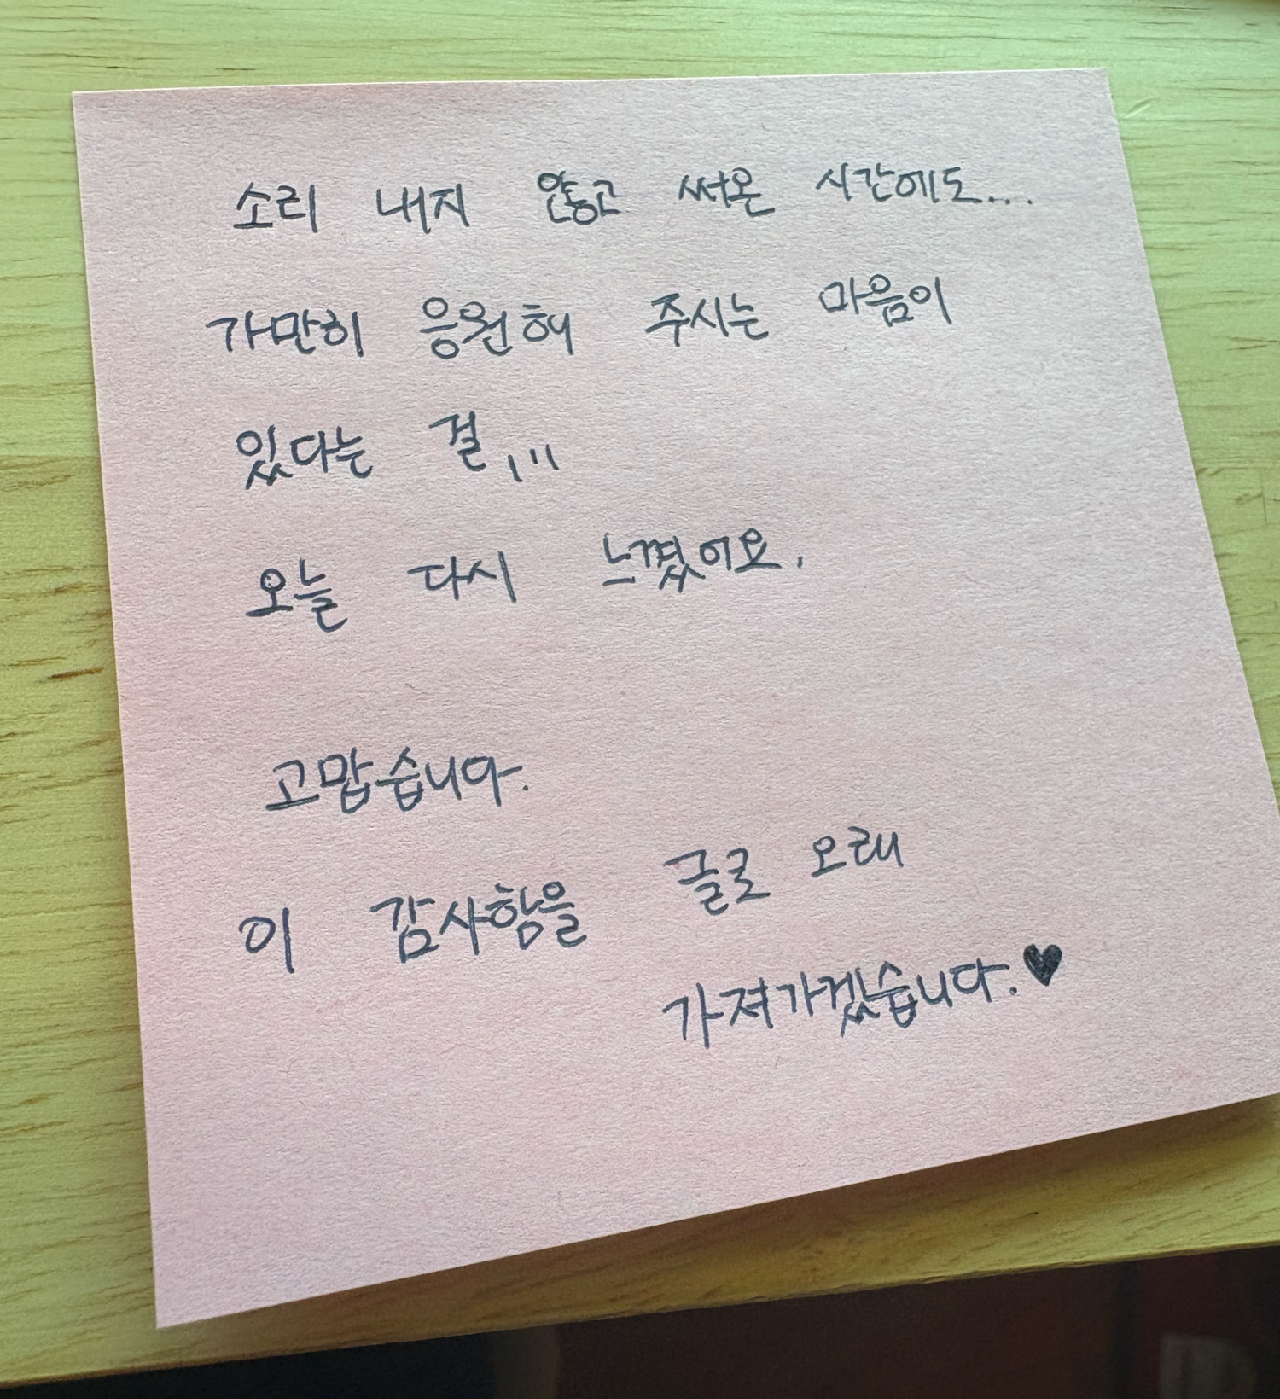 소리 내지 않고 써온 시간에도...
가만히 응원해 주시는 마음이
있다는 걸,,,
오늘 다시 느꼈어요.
고맙습니다.
이 감사함을 글로 오래
가져가겠습니다.♥